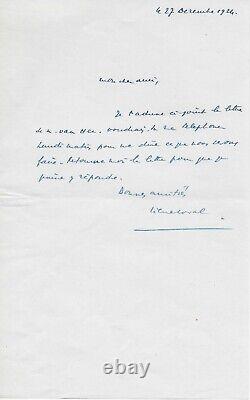 le 27 Décembre 1924.
mon cher ami,
Je t'adresse ci-joint la lettre
de m. van
me téléphoner
Lundi matin, pour me dire ce que nous devons
faire. Retourne moi la lettre pour que je
puisse y répondre.
Bonnes amitiés
Pierre Laval
© ebay.com